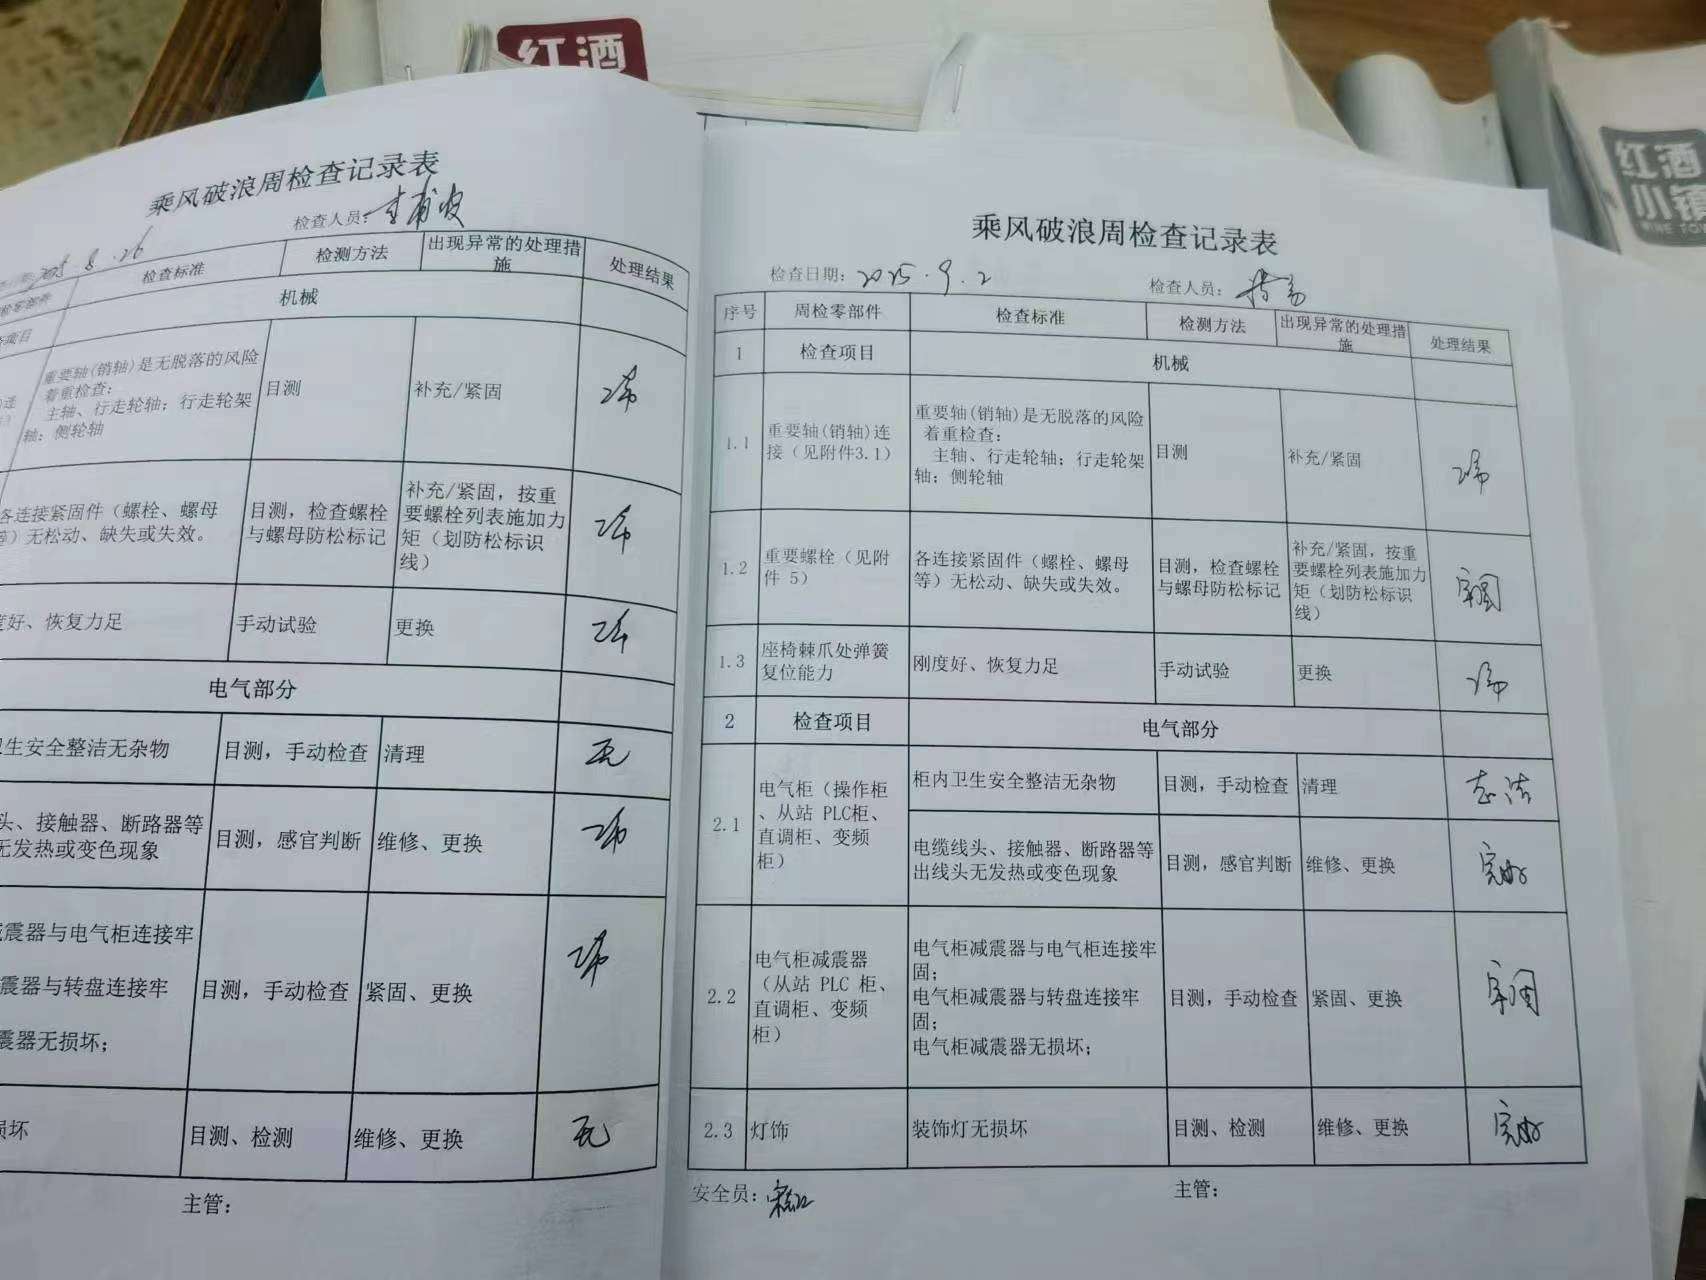 红酒
红酒
小镇
WINE TOWN
乘风破浪周检查记录表
检查人员:
8.26
检查标准
检测方法
出现异常的处理措
施
处理结果
机械
重要轴(销轴)是无脱落的风险
着重检查:
主轴、行走轮轴;行走轮架
轴;侧轮轴
目测
补充/紧固
各连接紧固件(螺栓、螺母
等)无松动、缺失或失效。
目测,检查螺栓
与螺母防松标记
补充/紧固,按重
要螺栓列表施加力
矩(划防松标识
线)
度好、恢复力足
手动试验
更换
电气部分
卫生安全整洁无杂物
目测,手动检查
清理
无
头、接触器、断路器等
无发热或变色现象
目测,感官判断
维修、更换
减震器与电气柜连接牢
震器与转盘连接牢
震器无损坏;
目测,手动检查
紧固、更换
损坏
目测、检测
维修、更换
无
主管:
乘风破浪周检查记录表
检查日期: 2025.9.2
检查人员:
序号
周检零部件
检查标准
检测方法
出现异常的处理措
施
处理结果
1
检查项目
机械
1.1
重要轴(销轴)连
接(见附件3.1)
重要轴(销轴)是无脱落的风险
着重检查:
主轴、行走轮轴;行走轮架
轴;侧轮轴
目测
补充/紧固
1.2
重要螺栓(见附
件 5)
各连接紧固件(螺栓、螺母
等)无松动、缺失或失效。
目测,检查螺栓
与螺母防松标记
补充/紧固,按重
要螺栓列表施加力
矩(划防松标识
线)
牢固
1.3
座椅棘爪处弹簧
复位能力
刚度好、恢复力足
手动试验
更换
2
检查项目
电气部分
2.1
电气柜(操作柜
、从站 PLC柜、
直调柜、变频
柜)
柜内卫生安全整洁无杂物
目测,手动检查
清理
电缆线头、接触器、断路器等
出线头无发热或变色现象
目测,感官判断
维修、更换
完好
2.2
电气柜减震器
(从站 PLC 柜、
直调柜、变频
柜)
电气柜减震器与电气柜连接牢
固;
电气柜减震器与转盘连接牢
固;
电气柜减震器无损坏;
目测,手动检查
紧固、更换
牢固
2.3
灯饰
装饰灯无损坏
目测、检测
维修、更换
完好
安全员:
主管: